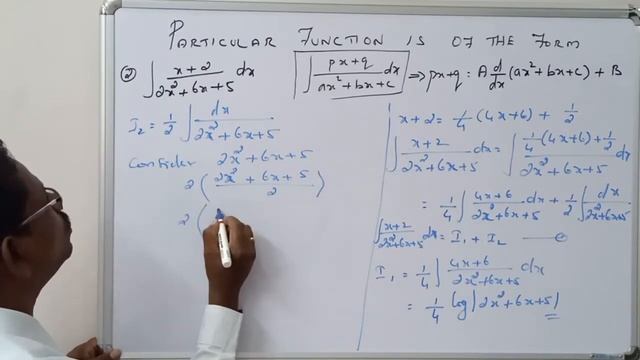 PARTICULAR FUNCTION IS OF THE FORM
② ∫ x+2 / 2x²+6x+5 dx
∫ px+q / ax²+bx+c dx ⇒ px+q : A d/dx (ax²+bx+c) + B
I₂ = 1/2 ∫ dx / 2x²+6x+5
Consider 2x²+6x+5
2 ( 2x²+6x+5 / 2 )
2 (
x+2 = 1/4 (4x+6) + 1/2
∫ x+2 / 2x²+6x+5 dx = ∫ 1/4 (4x+6) + 1/2 / 2x²+6x+5 dx
= 1/4 ∫ 4x+6 / 2x²+6x+5 dx + 1/2 ∫ dx / 2x²+6x+5
∫ x+2 / 2x²+6x+5 dx = I₁ + I₂ —
I₁ = 1/4 ∫ 4x+6 / 2x²+6x+5 dx
= 1/4 log | 2x²+6x+5 |